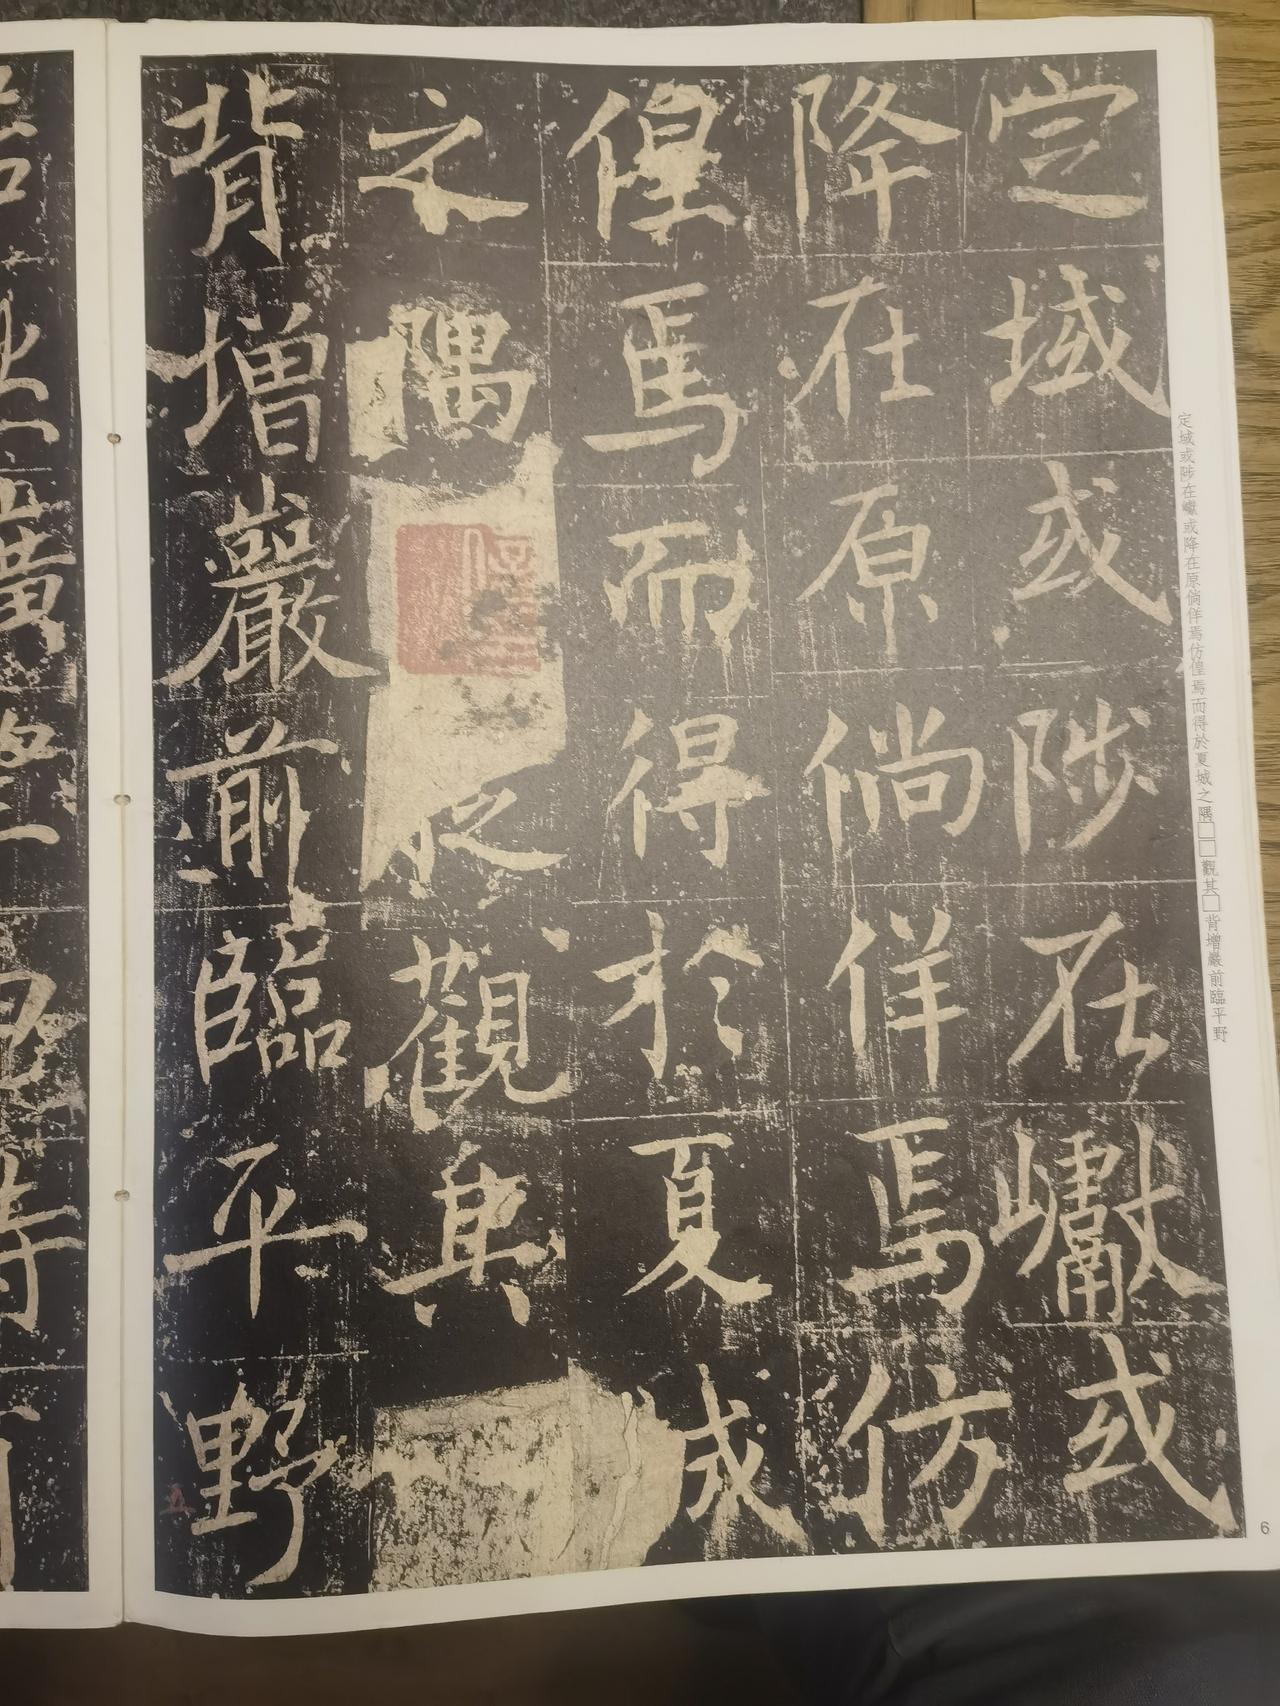 定域或陟在巘或
降在原倘佯焉仿
偟焉而得於夏城
之隅從觀其
背增嚴前臨平野
定域或陟在巘或降在原倘佯焉仿偟焉而得於夏城之隅□□觀其□背增嚴前臨平野
6